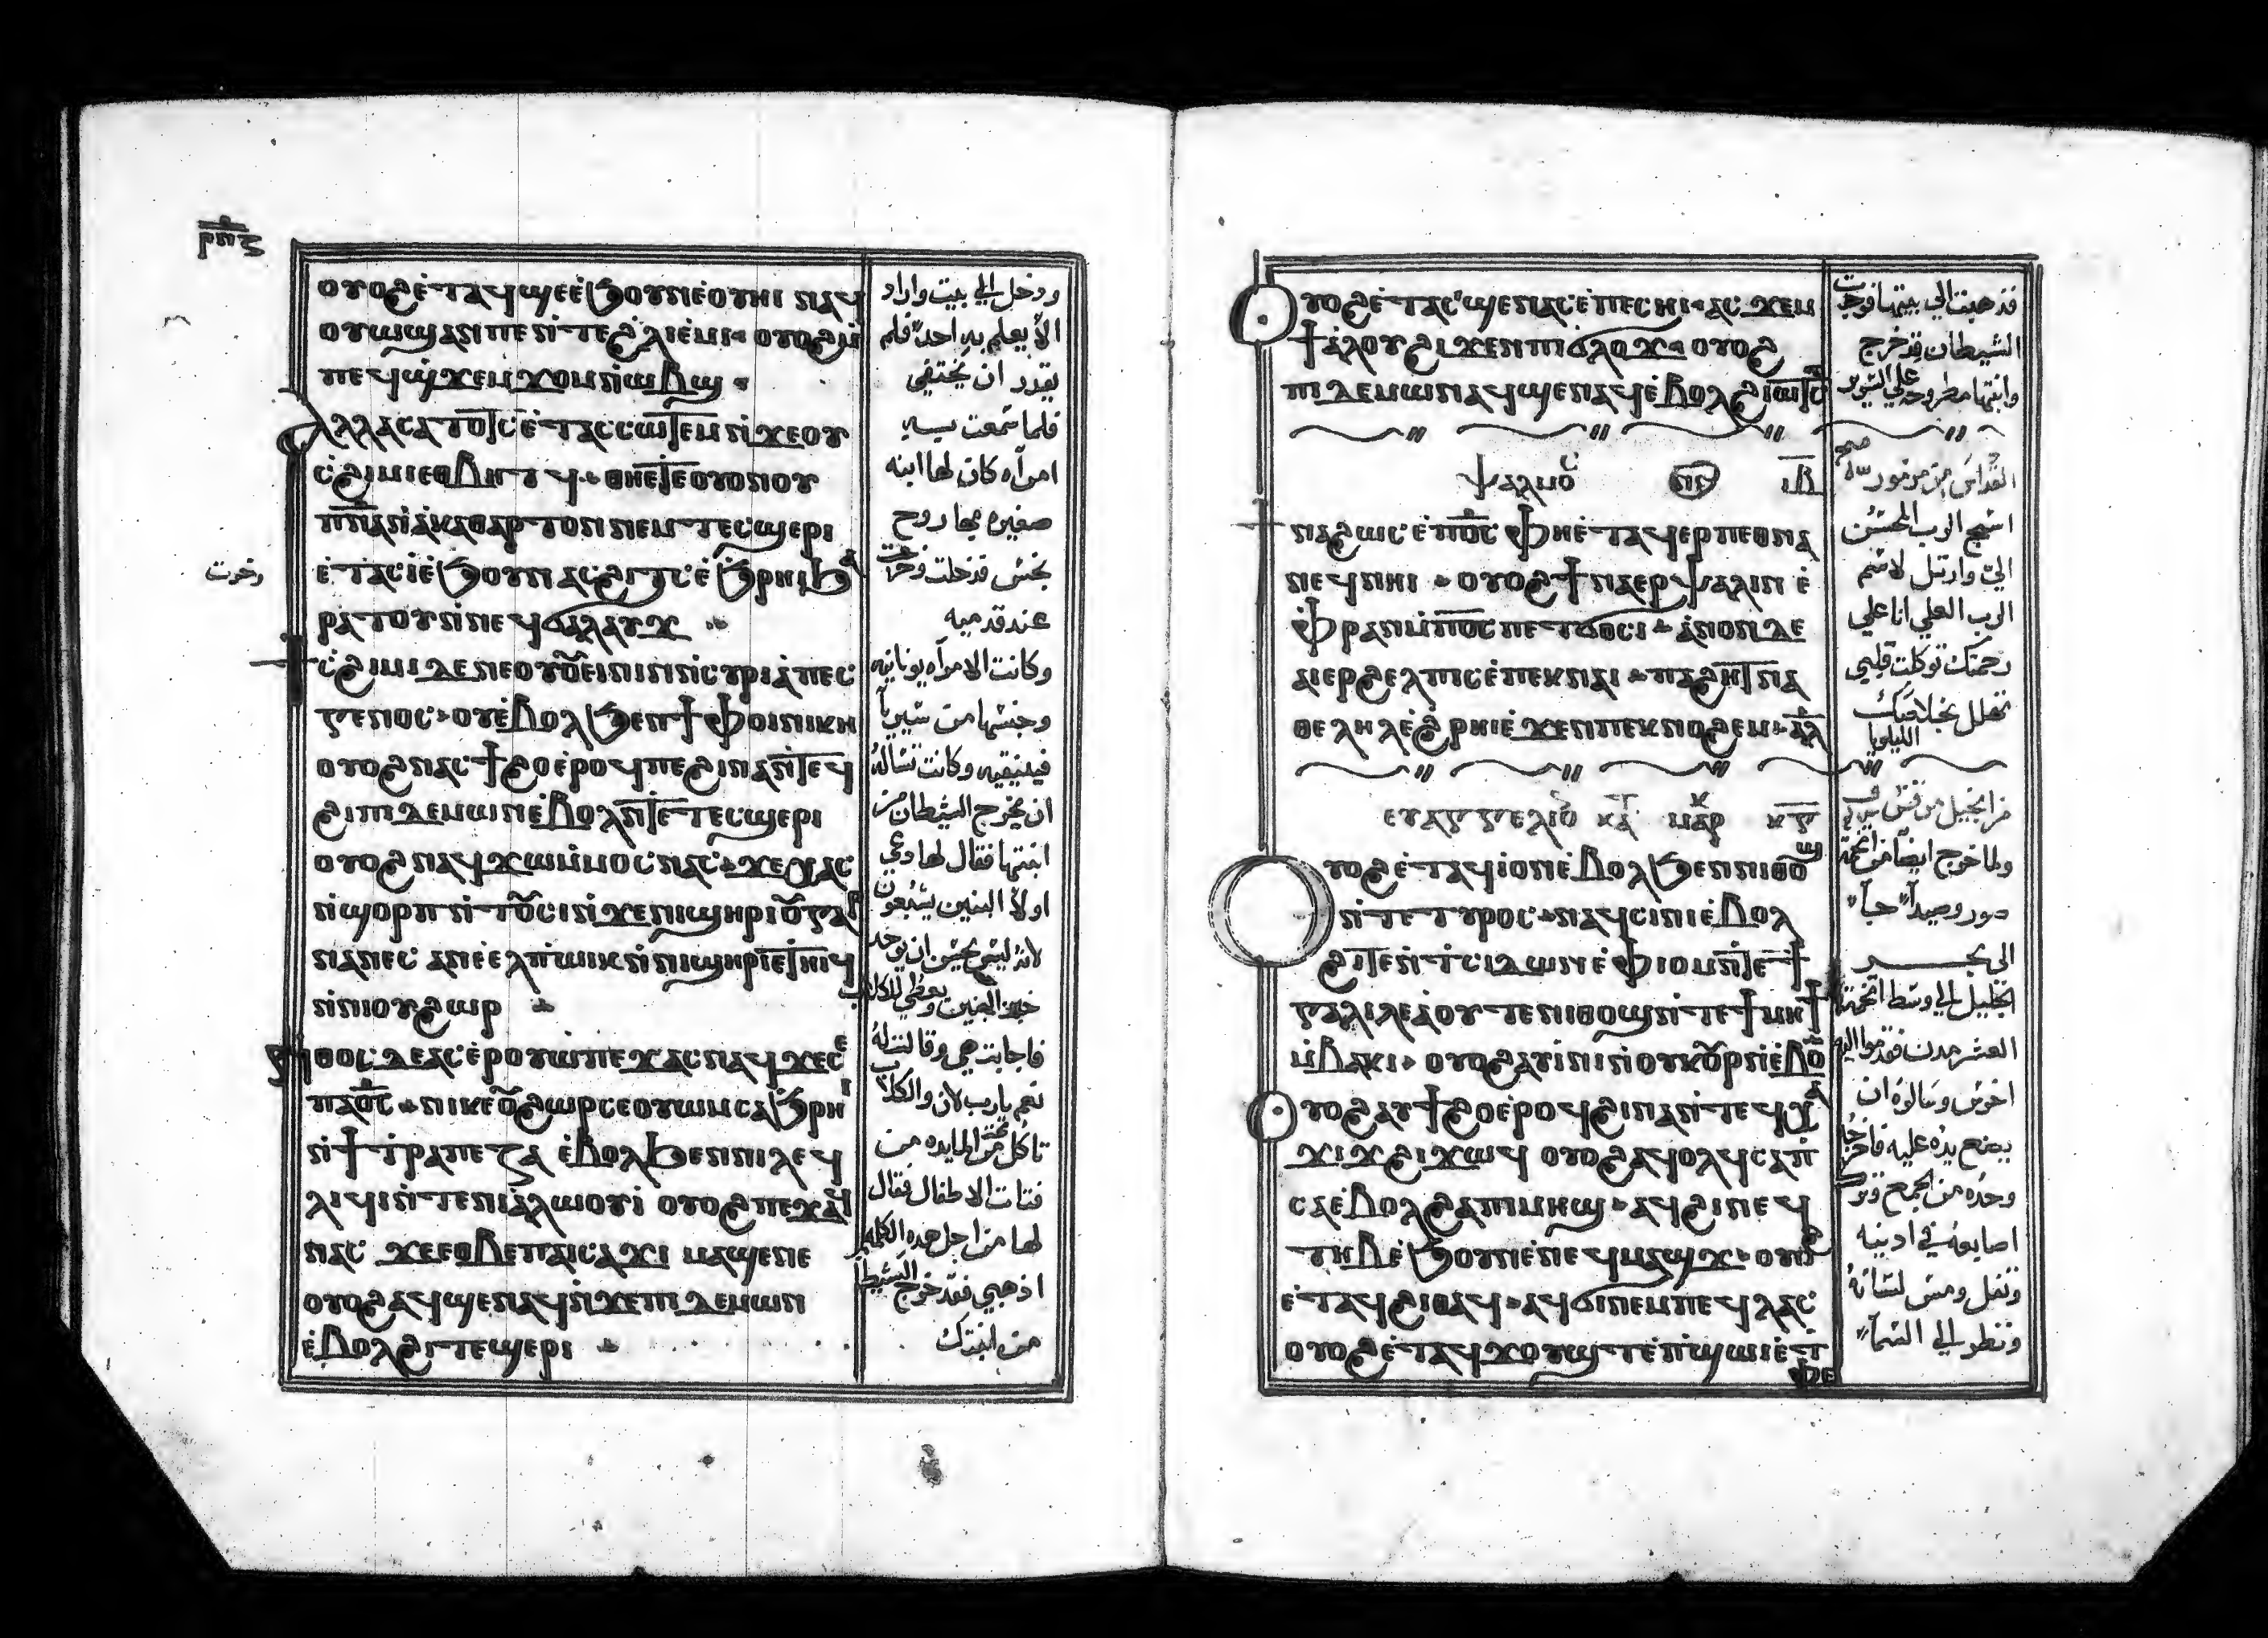 ⲣⲡⲍ
ⲟⲩⲟϩ ⲉ̇ⲧⲁϥϣⲉ ⲉ̇ϧⲟⲩⲛ ⲉ̇ⲟⲩⲏⲓ ⲛⲁϥ
ⲟⲩⲱϣ ⲁⲛ ⲡⲉ ⲛ̇ⲧⲉ ϩ̇ⲗⲓ ⲉ̇ⲙⲓ ⲟⲩⲟϩ ⲙ̇
ⲡⲉϥϣ̇ϫⲉⲙϫⲟⲙ ⲛ̇ⲱⲃϣ
ⲁⲗⲗⲁ ⲥⲁⲧⲟⲧⲥ ⲉ̇ⲧⲁⲥⲥⲱⲧⲉⲙ ⲛ̇ϫⲉ ⲟⲩ
ⲥ̇ϩⲓⲙⲓ ⲉⲑⲃⲏⲧϥ ⲑⲏⲉⲧⲉ ⲟⲩⲟⲛ ⲟⲩ
ⲡⲛⲁ ⲛ̇ⲁ̇ⲕⲁⲑⲁⲣⲧⲟⲛ ⲛⲉⲙ ⲧⲉⲥϣⲉⲣⲓ
ⲉ̇ⲧⲁⲥⲓ̇ ⲉ̇ϧⲟⲩⲛ ⲁⲥϩⲓⲧⲥ ⲉ̇ϧⲣⲏⲓ ϧⲁ
ⲣⲁⲧⲟⲩ ⲛ̇ⲛⲉϥϭⲁⲗⲁⲩϫ
ⲥ̇ϩⲓⲙⲓ ⲇⲉ ⲛⲉ ⲟⲩⲟ̅ⲉⲓⲛⲓⲛ ⲛ̇ⲥⲩⲣⲓⲁ̇ ⲡⲉⲥ
ⲅⲉⲛⲟⲥ ⲟⲩⲉ̇ⲃⲟⲗ ϧⲉⲛ ϯⲫⲟⲓⲛⲓⲕⲏ
ⲟⲩⲟϩ ⲛⲁⲥϯϩⲟ ⲉ̇ⲣⲟϥ ⲡⲉ ϩⲓⲛⲁ ⲛ̇ⲧⲉϥ
ϩⲓ ⲡⲓⲇⲉⲙⲱⲛ ⲉ̇ⲃⲟⲗ ⲛ̇ⲧⲉ ⲧⲉⲥϣⲉⲣⲓ
ⲟⲩⲟϩ ⲛⲁϥϫⲱ ⲙ̇ⲙⲟⲥ ⲛⲁⲥ ϫⲉ ⲭⲁⲥ
ⲛ̇ϣⲟⲣⲡ ⲛ̇ⲧⲟⲥⲓ ⲛ̇ϫⲉ ⲛⲓϣⲏⲣⲓ ⲟ̅ⲅⲁⲣ
ⲛⲁⲛⲉⲥ ⲁⲛ ⲉ̇ⲉⲗ ⲡ̇ⲱⲓⲕ ⲛ̇ⲛⲓϣⲏⲣⲓ ⲉ̇ⲧⲏⲓϥ
ⲛ̇ⲛⲓⲟⲩϩⲱⲣ
ⲛⲑⲟⲥ ⲇⲉ ⲁⲥⲉ̇ⲣⲟⲩⲱ̇ ⲡⲉϫⲁⲥ ⲛⲁϥ ϫⲉ ⲥⲉ
ⲡⲁⲟ̅ⲥ ⲛⲓⲕⲉⲟ̅ϩⲱⲣ ⲥⲉⲟⲩⲱⲙ ⲥⲁϧⲣⲏⲓ
ⲛ̇ϯⲧ̇ⲣⲁⲡⲉⲍⲁ ⲉ̇ⲃⲟⲗ ϧⲉⲛ ⲛⲓⲗⲉϥ
ⲗⲓϥⲓ ⲛ̇ⲧⲉ ⲛⲓⲁ̇ⲗⲱⲟⲩⲓ̇ ⲟⲩⲟϩ ⲡⲉϫⲁϥ
ⲛⲁⲥ ϫⲉ ⲉⲑⲃⲉ ⲡⲁⲓⲥⲁϫⲓ ⲙⲁϣⲉⲛⲉ
ⲟⲩⲟϩ ⲁϥϣⲉⲛⲁϥ ⲛ̇ϫⲉ ⲡⲓⲇⲉⲙⲱⲛ
ⲉ̇ⲃⲟⲗ ϩⲓ ⲧⲉϣⲉⲣⲓ
ودخل الي بيت واراد
الا يعلم به احد فلم
يقدر ان يختفي
فلما سمعت بسببه
امرأه كان لها ابنه
صغيره بها روح
نجس فدخلت وخرت
وخرت
عند قدميه
وكانت الامرأه يونانيه
وجنسها من سيريا
فينيقيه وكانت تسأله
ان يخرج الشيطان من
ابنتها فقال لها دعي
اولا البنين يشبعون
لانه ليس بحسن ان يوخد
خبز البنين ويعطي للكلاب
فاجابت هي وقالت له
نعم يارب لان والكلاب
تأكل من تحت المايده من
فتات الاطفال فقال
لها من اجل هده الكلمه
ادهبي فقد خرج الشيطان
من ابنتك
ⲟⲩⲟϩ ⲉ̇ⲧⲁⲥϣⲉⲛⲁⲥ ⲉ̇ⲡⲉⲥⲏⲓ ⲁⲥϫⲉⲙ
ϯⲁ̇ⲗⲟⲩ ϩⲓϫⲉⲛ ⲡⲓϭⲗⲟϫ ⲟⲩⲟϩ
ⲡⲓⲇⲉⲙⲱⲛ ⲁϥϣⲉⲛⲁϥ ⲉ̇ⲃⲟⲗ ϩⲓⲱⲧⲥ
ⲯⲁⲗⲙⲟⲥ ⲛⲅ ⲓⲃ
ⲛⲁϩⲱⲥ ⲉ̇ⲡⲟ̅ⲥ ⲫⲏⲉ̇ⲧⲁϥⲉⲣⲡⲉⲑⲛⲁ
ⲛⲉϥ ⲛⲏⲓ ⲟⲩⲟϩ ϯⲛⲁⲉⲣⲯⲁⲗⲓⲛ ⲉ̇
ⲫⲣⲁⲛ ⲙ̇ⲡⲟ̅ⲥ ⲡⲉⲧϭⲟⲥⲓ ⲁ̇ⲛⲟⲛ ⲇⲉ
ⲁⲓⲉⲣϩⲉⲗⲡⲓⲥ ⲉ̇ⲡⲉⲕⲛⲁⲓ ⲡⲁϩⲏⲧ ⲛⲁ
ⲑⲉⲗⲏⲗ ⲉ̇ϩⲣⲏⲓ ⲉ̇ϫⲉⲛ ⲡⲉⲕⲛⲟϩⲉⲙ ⲁⲗ
ⲉⲩⲁⲅⲅⲉⲗⲓⲟ ⲕⲁⲧ ⲙⲁⲣⲕ ⲕⲅ
ⲟⲩⲟϩ ⲉ̇ⲧⲁϥⲓ̇ ⲟⲛ ⲉ̇ⲃⲟⲗ ϧⲉⲛ ⲛⲓⲑⲟϣ
ⲛ̇ⲧⲉ ⲧⲩⲣⲟⲥ ⲛⲁϥⲥⲓⲛⲓ ⲉ̇ⲃⲟⲗ
ϩⲓⲧⲉⲛ ⲧ̇ⲥⲓⲇⲱⲛ ⲉ̇ⲫⲓⲟⲙ ⲛ̇ⲧⲉ ϯ
ⲅⲁⲗⲓⲗⲉⲁ ⲟⲩⲧⲉ ⲛⲓⲑⲟϣ ⲛ̇ⲧⲉ ϯⲙⲏϯ
ⲙ̇ⲃⲁⲕⲓ ⲟⲩⲟϩ ⲁⲩⲓ̇ⲛⲓ ⲛ̇ⲟⲩⲕⲟⲩⲣ ⲛ̇ⲉ̇ⲃⲟ
ⲟⲩⲟϩ ⲁⲩϯϩⲟ ⲉ̇ⲣⲟϥ ϩⲓⲛⲁ ⲛ̇ⲧⲉϥⲭⲁ
ϫⲓϫ ϩⲓϫⲱϥ ⲟⲩⲟϩ ⲁϥⲟⲗϥ ⲥⲁⲡ̇
ⲥⲁ ⲉ̇ⲃⲟⲗ ϩⲁ ⲡⲓⲙⲏϣ ⲁϥϩⲓ ⲛⲉϥ
ⲧⲏⲃ ⲉ̇ϧⲟⲩⲛ ⲉ̇ⲛⲉϥⲙⲁϣϫ ⲟⲩⲟϩ
ⲉ̇ⲧⲁϥϩⲓⲑⲁϥ ⲁϥϭⲓ ⲛⲉⲙ ⲡⲉϥⲗⲁⲥ
ⲟⲩⲟϩ ⲉ̇ⲧⲁϥϫⲟⲩϣⲧ ⲉ̇ⲡ̇ϣⲱⲓ ⲉ̇ⲧ
ⲫⲉ
فذهبت الي بيتها فوجدت
الشيطان قد خرج
وابنتها مطروحه علي السرير
القداس من مزمور
اسبح الرب المحسن
الي وارتل لاسم
الرب العلي انا علي
رحمتك توكلت قلبي
تهلل بخلاصك
الليلويا
ولما خرج ايضا من تخم
صور وصيدا جا
الي بحر
الجليل الي وسط تخم
العشر مدن فقدموا اليه
اخرس وسالوه ان
يضع يده عليه فاخرجه
وحده من الجمع وترك
اصابعه في ادنيه
وتفل ومس لسانه
ونظر الي السما